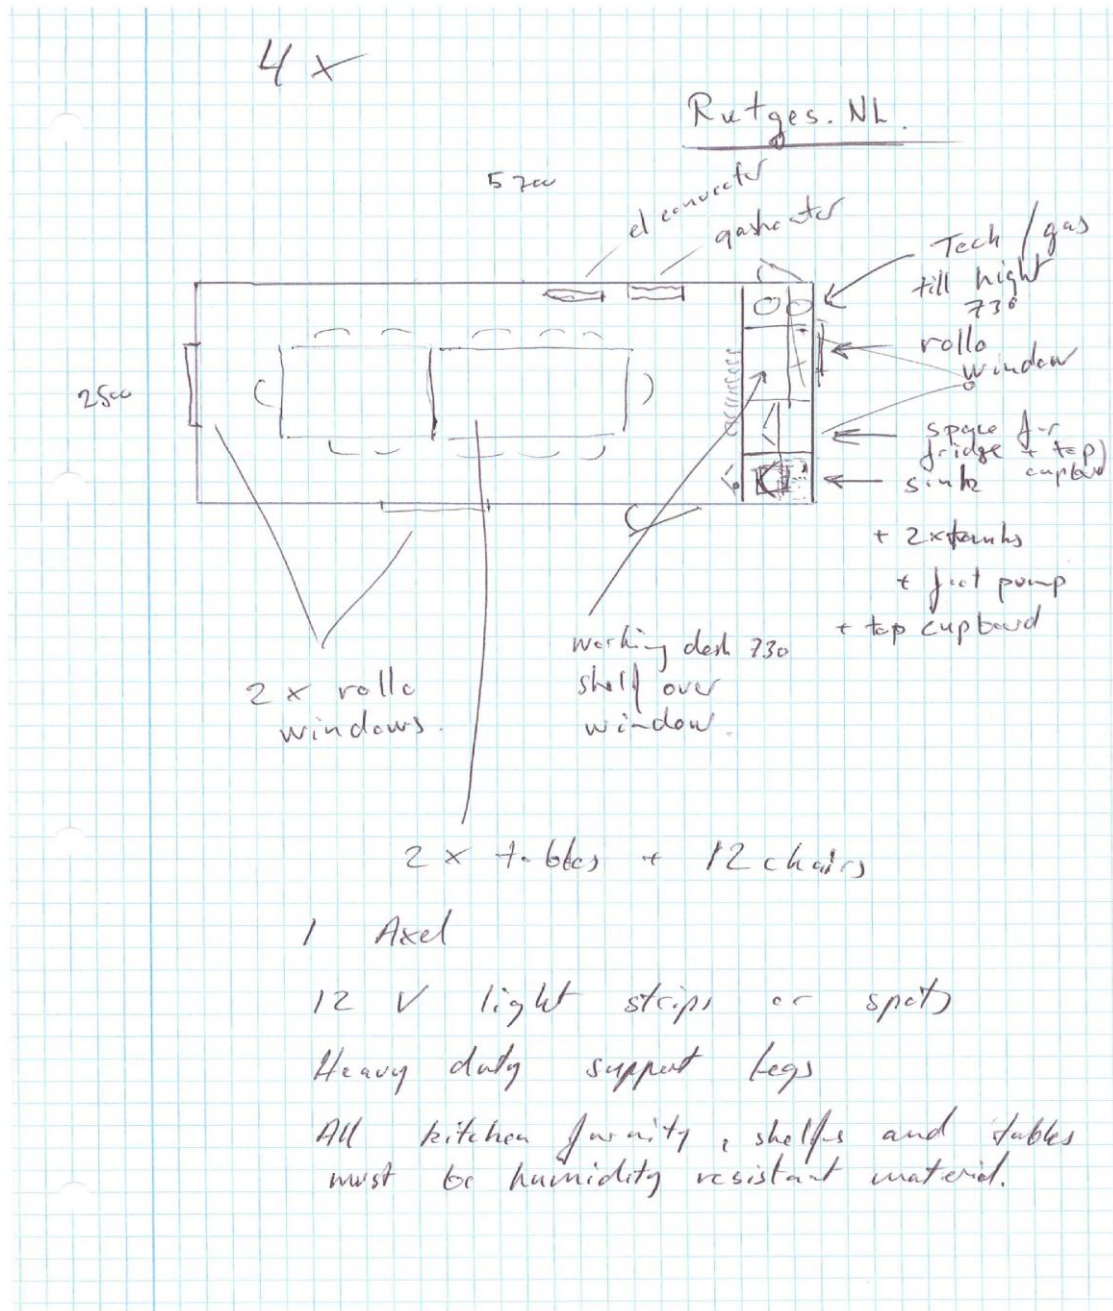 4 x
Rutges. NL.
5700
el convector
gasheater
Tech / gas
till hight
730
rollo
window
2500
space for
fridge + top
cupboard
sink
+ 2x tanks
+ foot pump
+ top cupboard
working desk 730
shelf over
window.
2 x rollo
windows.
2 x tables + 12 chairs
1 Axel
12 V light strips or spots
Heavy duty support legs
All kitchen furnity, shelfs and tables
must be humidity resistant material.